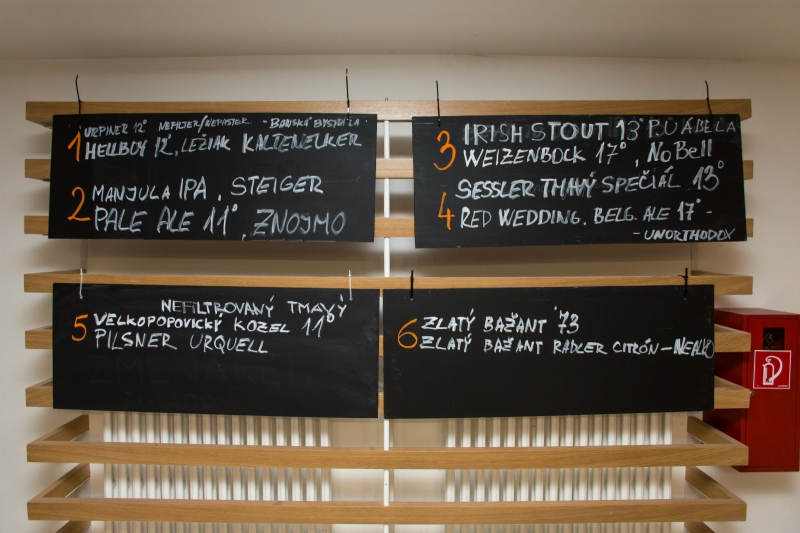 1 URPINER 12° NEFILTER/NEPASTER. - BANSKÁ BYSTRICA
HELLBOY 12°, LEŽIAK KALTENECKER
2 MANJULA IPA, STEIGER
PALE ALE 11°, ZNOJMO
3 IRISH STOUT 13°
WEIZENBOCK 17°, NOBELL
SESSLER TMAVÝ ŠPECIÁL 13°
4 RED WEDDING. BELG. ALE 17° -
- UNORTHODOX
NEFILTROVANÝ TMAVÝ
5 VELKOPOPOVICKÝ KOZEL 11°
PILSNER URQUELL
6 ZLATÝ BAŽANT '73
ZLATÝ BAŽANT RADLER CITRÓN - NEALKO